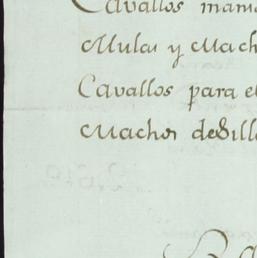 Cavallos man
Mulas y Mach
Cavallos para e
Machos de Sill